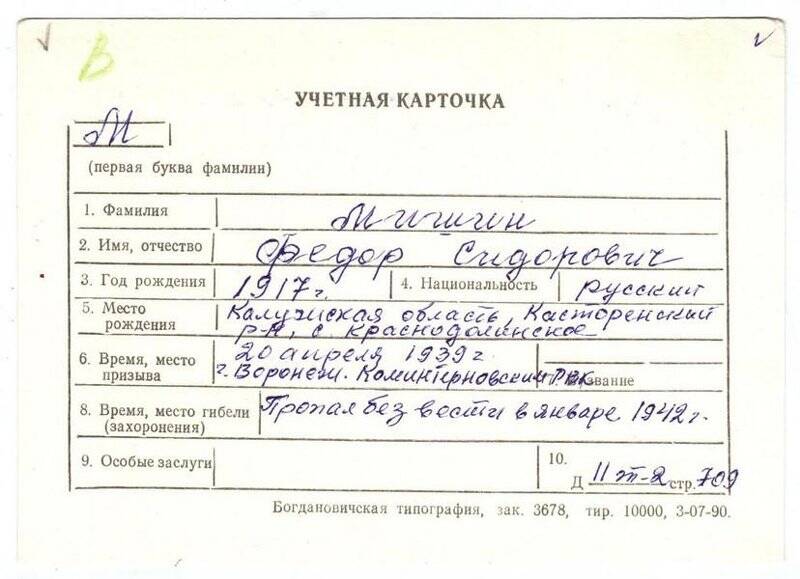 В
УЧЕТНАЯ КАРТОЧКА
М
(первая буква фамилии)
1. Фамилия Мишин
2. Имя, отчество Федор Сидорович
3. Год рождения 1917 г. 4. Национальность русский
5. Место рождения Калужская область, Касторенский
р-н, с. Краснодолинское
6. Время, место призыва 20 апреля 1939 г.
г. Воронеж. Коминтерновский РВК
8. Время, место гибели (захоронения) Пропал без вести в январе 1942 г.
9. Особые заслуги
10.
Д 11 т-2 стр. 709
Богдановичская типография, зак. 3678, тир. 10000, 3-07-90.